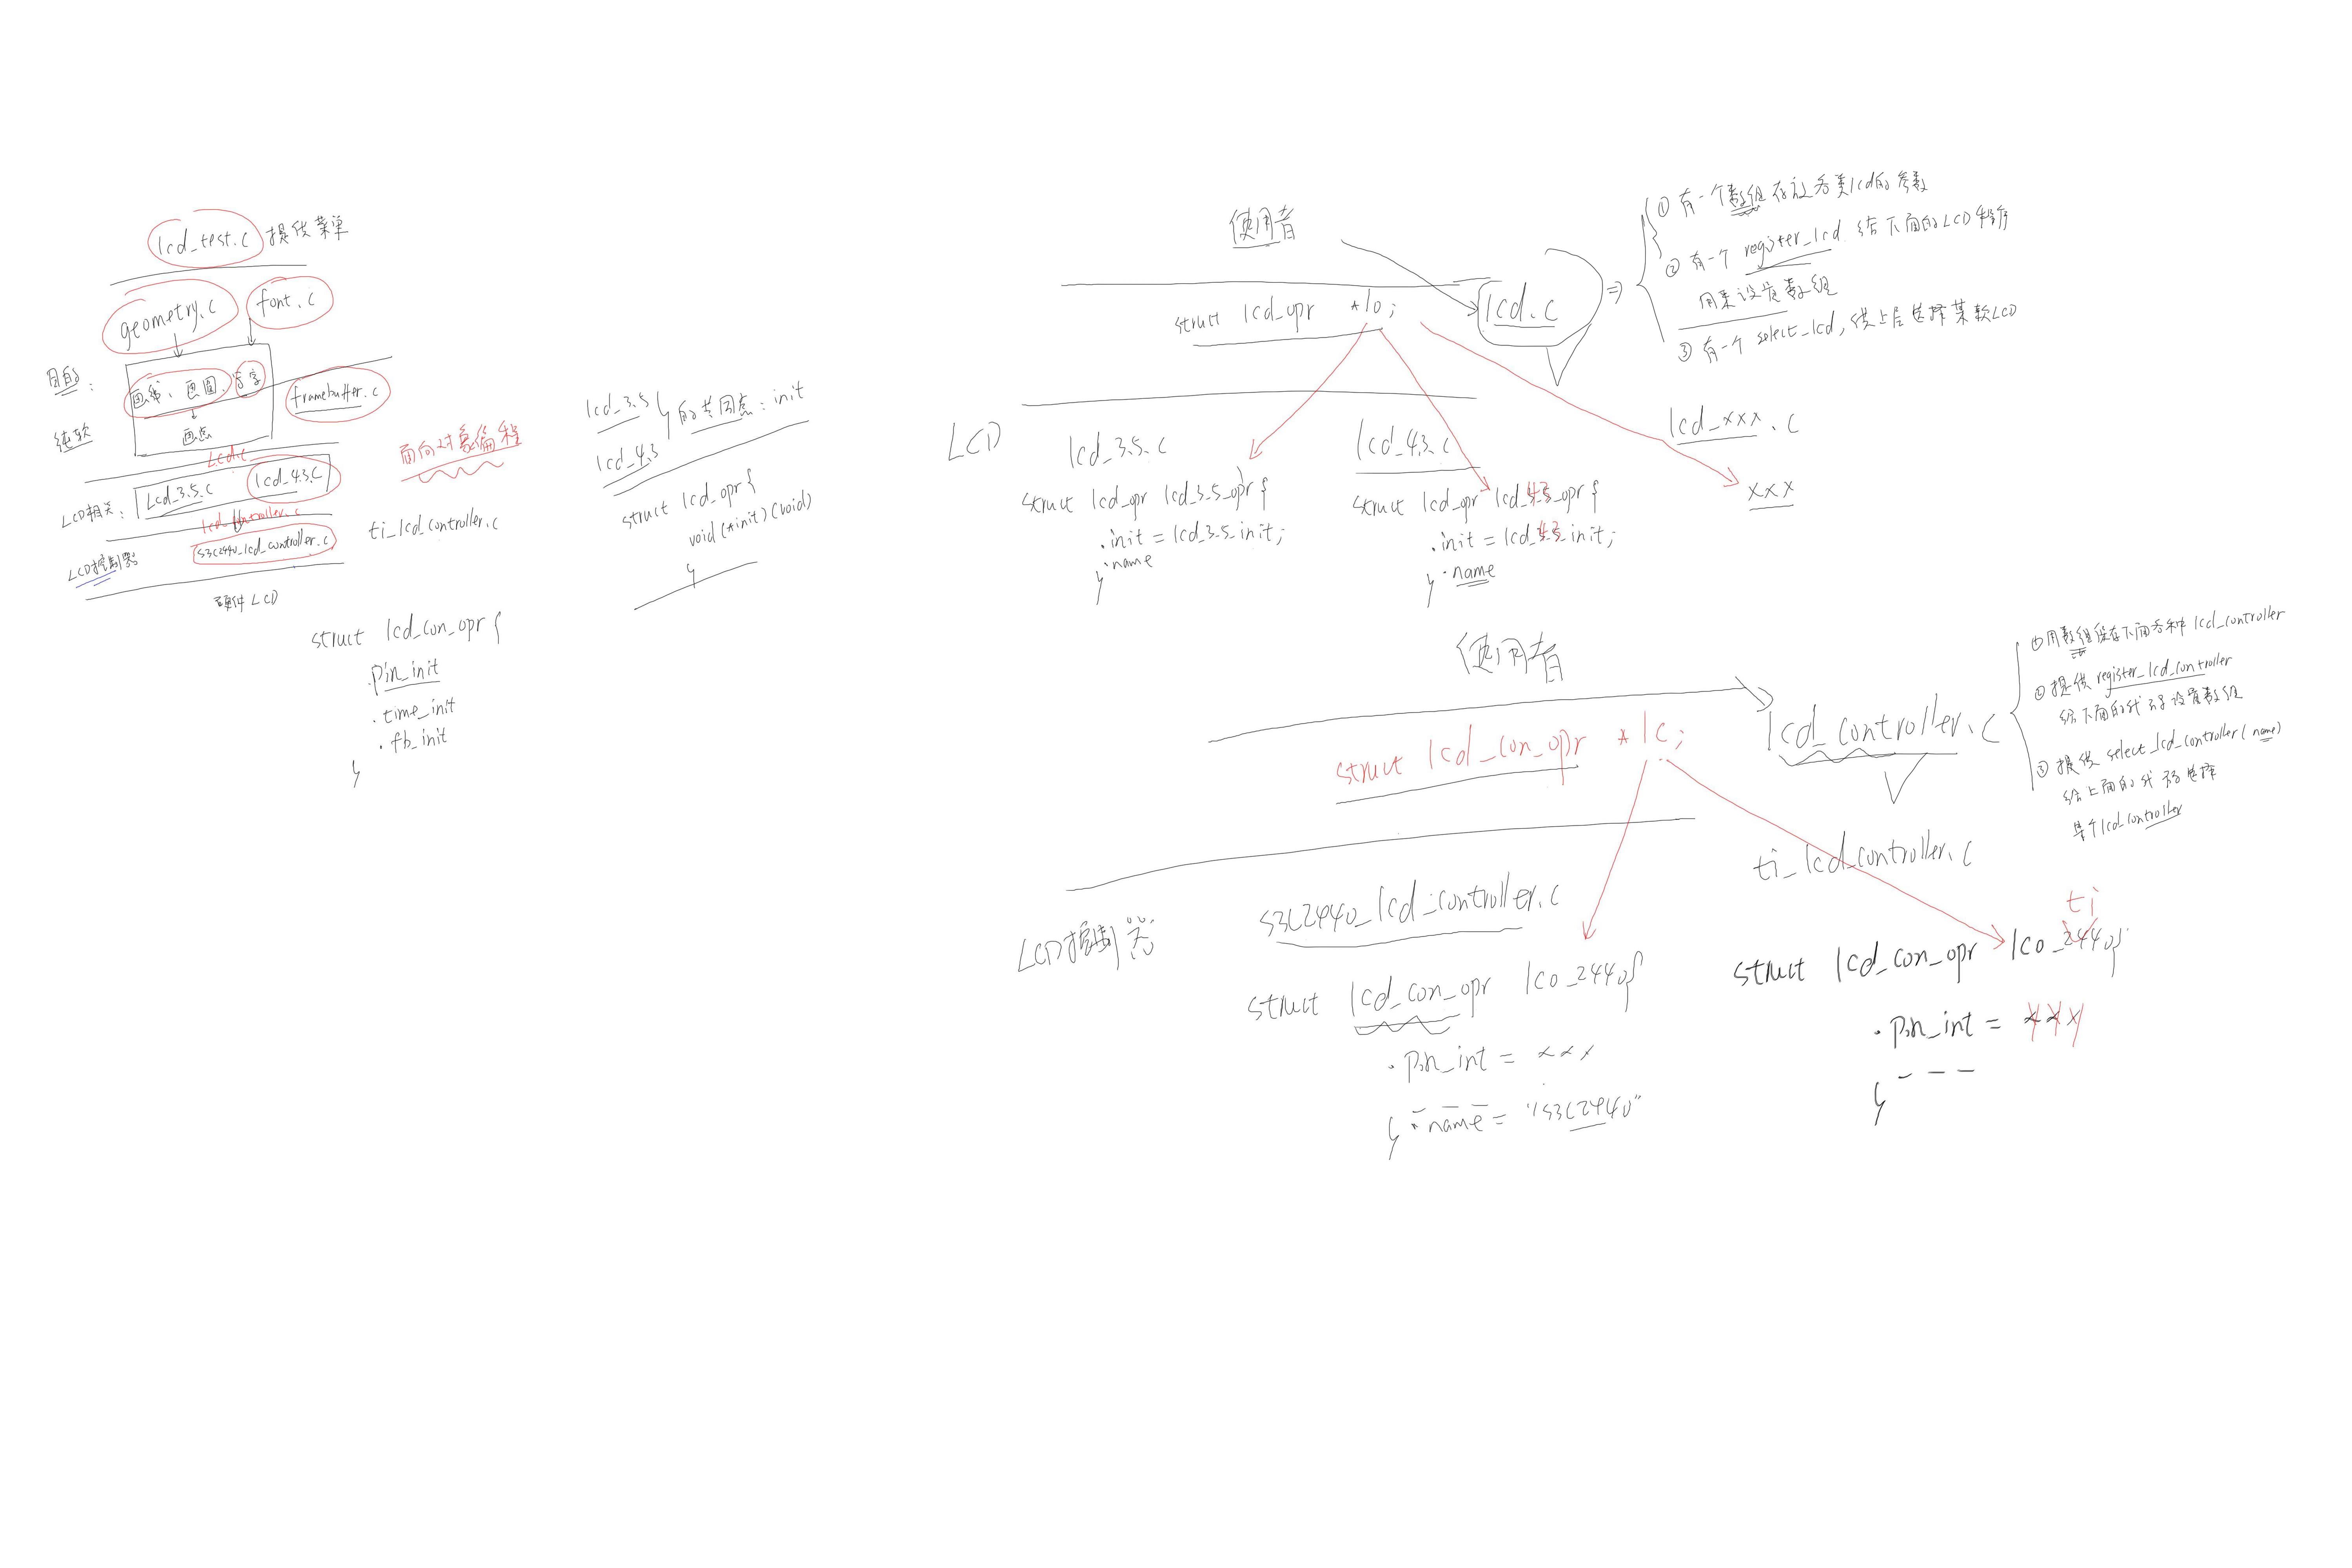 lcd_test.c 提供菜单
geometry.c
font.c
目的:
画线、画圆、写字
framebuffer.c
纯软
画点
lcd.c
LCD相关:
Lcd_3.5.c
lcd_4.3.c
lcd_controller.c
LCD控制器
s3c2440_lcd_controller.c
ti_lcd_controller.c
硬件LCD
面向对象编程
struct lcd_con_opr {
.pin_init
.time_init
.fb_init
}
lcd_3.5
lcd_4.3
} 的共同点: init
struct lcd_opr {
void (*init)(void)
}
使用者
struct lcd_opr *lo;
lcd.c
⇒
① 有一个数组存放各类lcd的参数
② 有一个 register_lcd 给下面的LCD程序
用来设置数组
③ 有一个 select_lcd, 供上层选择某款LCD
LCD
lcd_3.5.c
struct lcd_opr lcd_3.5_opr {
.init = lcd_3.5_init;
.name
}
lcd_4.3.c
struct lcd_opr lcd_4.3_opr {
.init = lcd_4.3_init;
.name
}
lcd_xxx.c
xxx
使用者
struct lcd_con_opr *lc;
lcd_controller.c
① 用数组保存下面各种 lcd_controller
② 提供 register_lcd_controller
给下面的代码设置数组
③ 提供 select_lcd_controller(name)
给上面的代码选择
某个lcd_controller
LCD控制器
s3c2440_lcd_controller.c
struct lcd_con_opr lco_2440{
.pin_int = xxx
.name = "s3c2440"
}
ti_lcd_controller.c
ti
struct lcd_con_opr lco_2440{
.pin_int = xxx
}